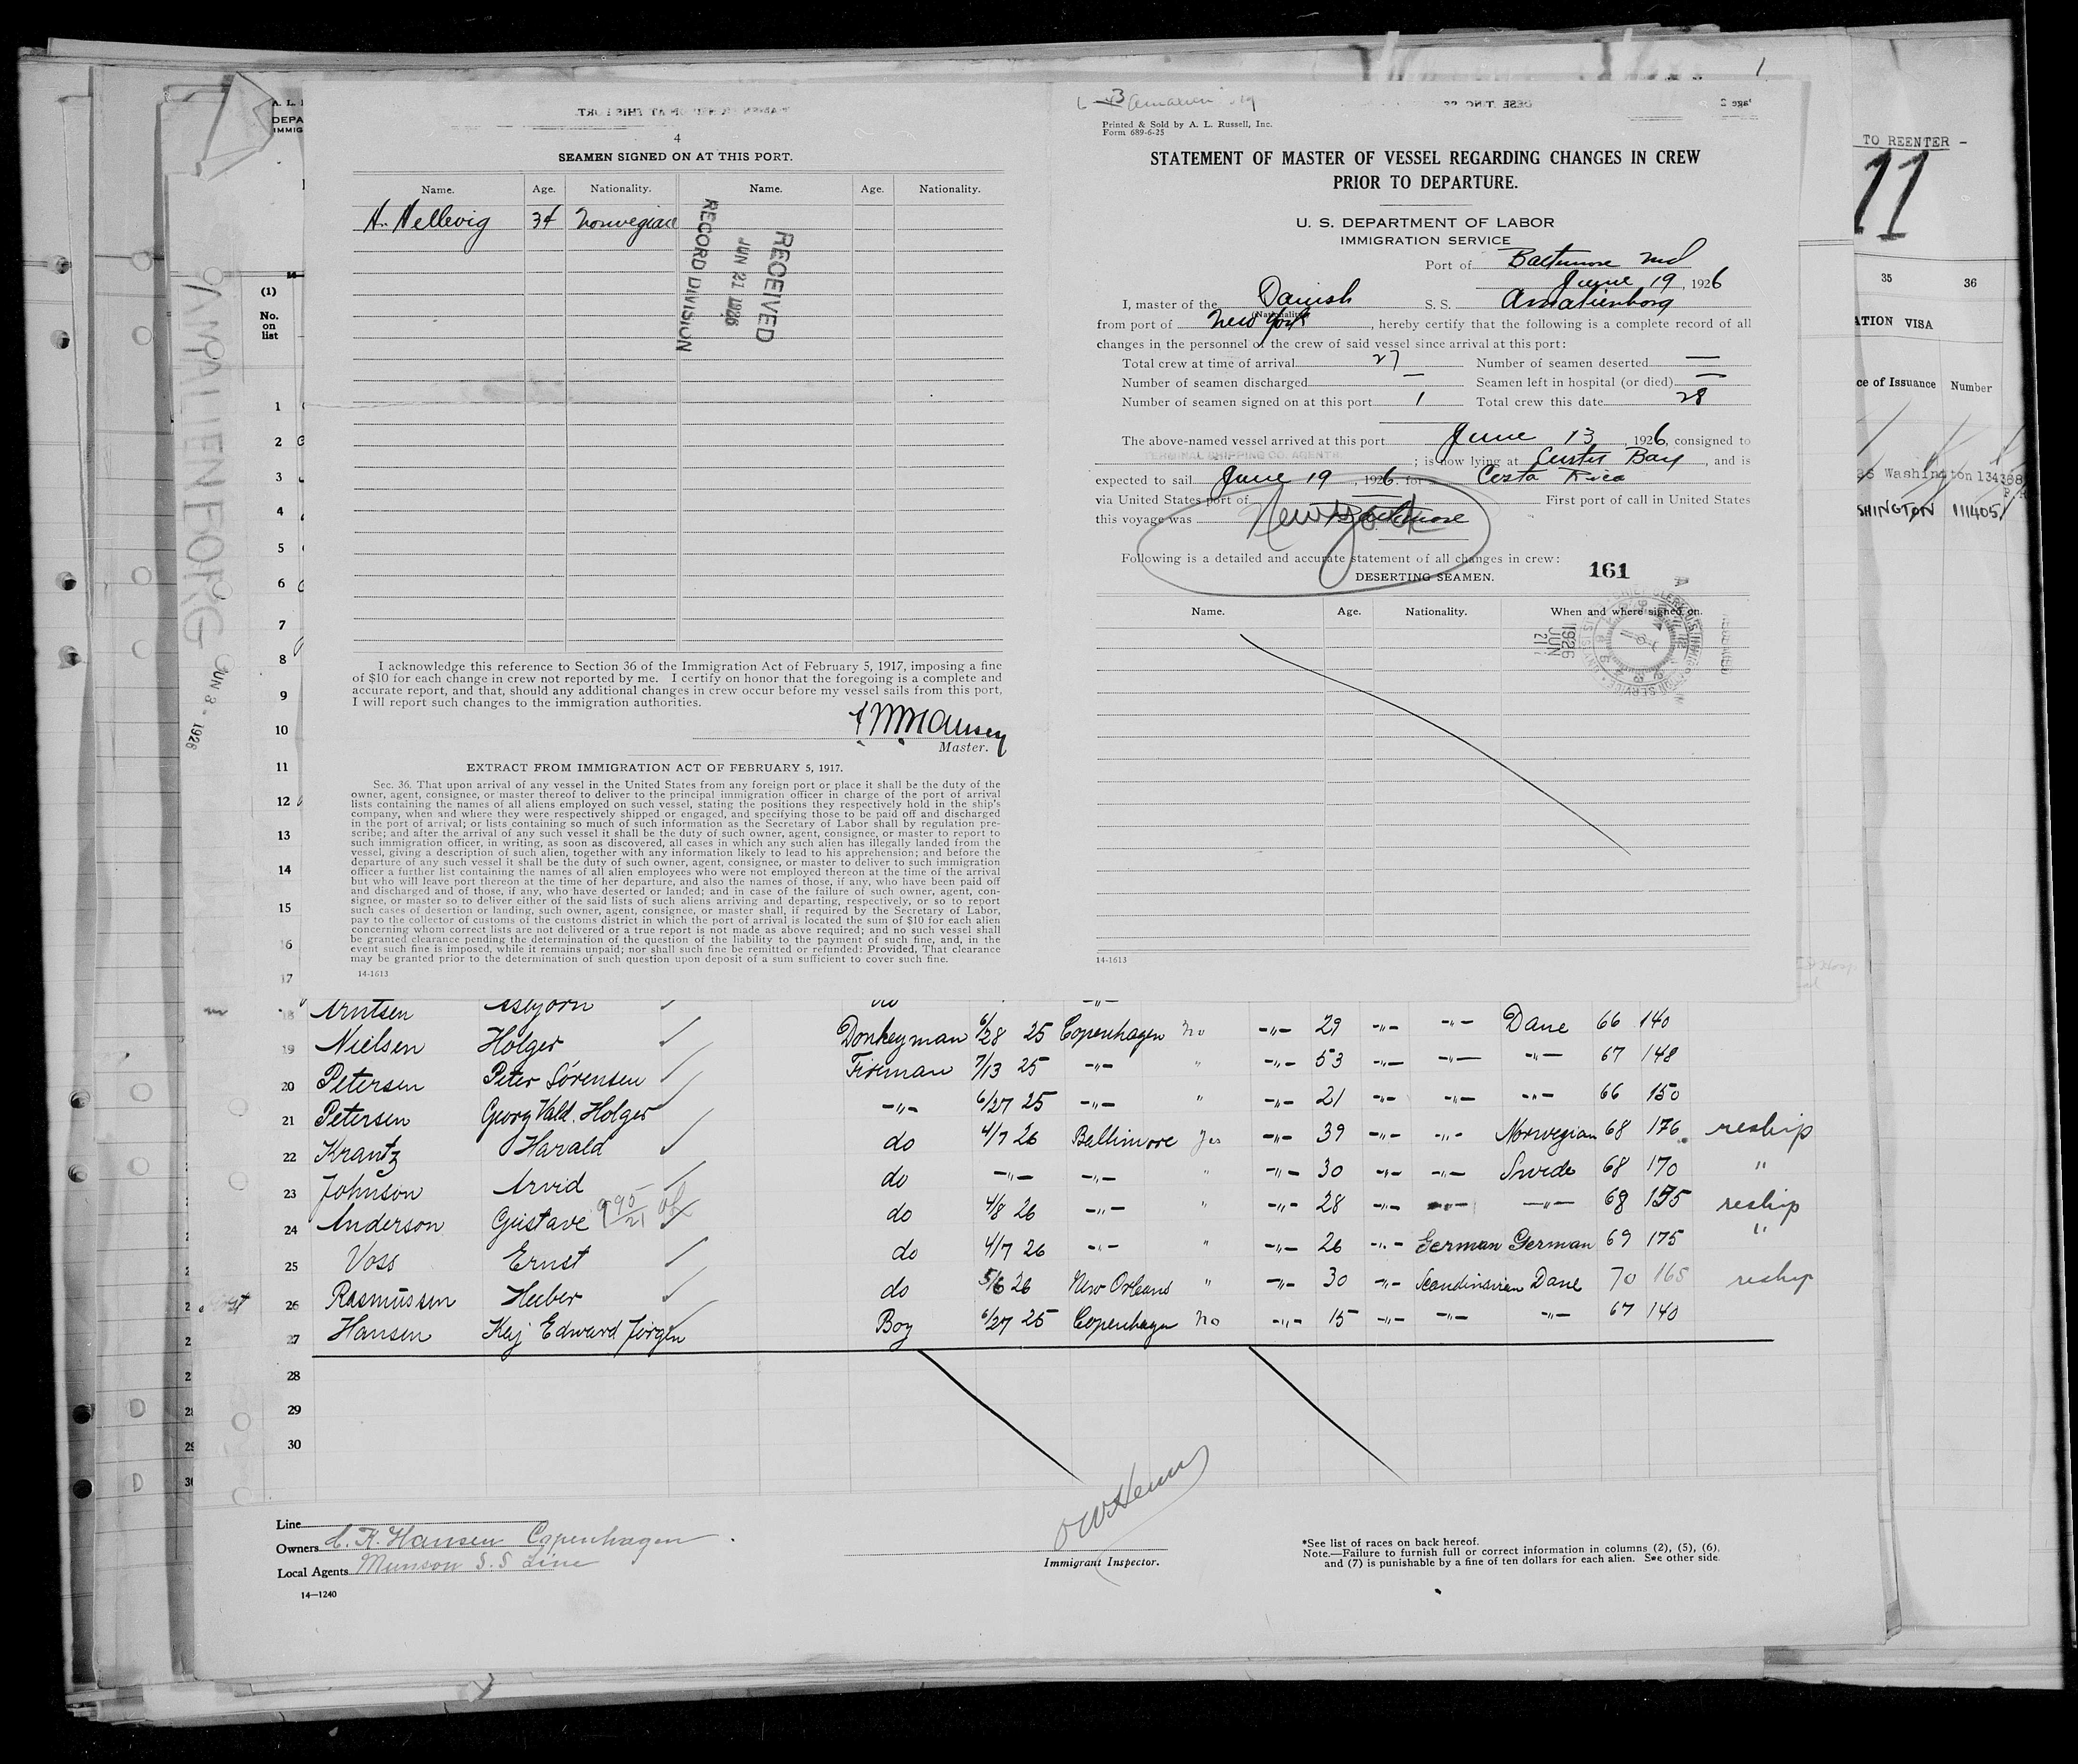 4
SEAMEN SIGNED ON AT THIS PORT.
Name. Age. Nationality. Name. Age. Nationality.
H. Hellevig 34 Norwegian
RECEIVED
JUN 21 1926
RECORD DIVISION
I acknowledge this reference to Section 36 of the Immigration Act of February 5, 1917, imposing a fine
of $10 for each change in crew not reported by me. I certify on honor that the foregoing is a complete and
accurate report, and that, should any additional changes in crew occur before my vessel sails from this port,
I will report such changes to the immigration authorities.
Master.
EXTRACT FROM IMMIGRATION ACT OF FEBRUARY 5, 1917.
Sec. 36. That upon arrival of any vessel in the United States from any foreign port or place it shall be the duty of the
owner, agent, consignee, or master thereof to deliver to the principal immigration officer in charge of the port of arrival
lists containing the names of all aliens employed on such vessel, stating the positions they respectively hold in the ship's
company, when and where they were respectively shipped or engaged, and specifying those to be paid off and discharged
in the port of arrival; or lists containing so much of such information as the Secretary of Labor shall by regulation pre-
scribe; and after the arrival of any such vessel it shall be the duty of such owner, agent, consignee, or master to report to
such immigration officer, in writing, as soon as discovered, all cases in which any such alien has illegally landed from the
vessel, giving a description of such alien, together with any information likely to lead to his apprehension; and before the
departure of any such vessel it shall be the duty of such owner, agent, consignee, or master to deliver to such immigration
officer a further list containing the names of all alien employees who were not employed thereon at the time of the arrival
but who will leave port thereon at the time of her departure, and also the names of those, if any, who have been paid off
and discharged and of those, if any, who have deserted or landed; and in case of the failure of such owner, agent, con-
signee, or master so to deliver either of the said lists of such aliens arriving and departing, respectively, or so to report
such cases of desertion or landing, such owner, agent, consignee, or master shall, if required by the Secretary of Labor,
pay to the collector of customs of the customs district in which the port of arrival is located the sum of $10 for each alien
concerning whom correct lists are not delivered or a true report is not made as above required; and no such vessel shall
be granted clearance pending the determination of the question of the liability to the payment of such fine, and, in the
event such fine is imposed, while it remains unpaid; nor shall such fine be remitted or refunded: Provided, That clearance
may be granted prior to the determination of such question upon deposit of a sum sufficient to cover such fine.
14-1613
1
Printed & Sold by A. L. Russell, Inc.
Form 689-6-25
STATEMENT OF MASTER OF VESSEL REGARDING CHANGES IN CREW
PRIOR TO DEPARTURE.
U. S. DEPARTMENT OF LABOR
IMMIGRATION SERVICE
Port of Baltimore Md
June 19, 1926
I, master of the Danish S. S. Amalienborg
(Nationality)
from port of New York, hereby certify that the following is a complete record of all
changes in the personnel of the crew of said vessel since arrival at this port:
Total crew at time of arrival 27 Number of seamen deserted —
Number of seamen discharged — Seamen left in hospital (or died) —
Number of seamen signed on at this port 1 Total crew this date 28
The above-named vessel arrived at this port June 13, 1926, consigned to
TERMINAL SHIPPING CO. AGENTS ; is now lying at Curtis Bay, and is
expected to sail June 19, 1926. for Costa Rica
via United States port of First port of call in United States
this voyage was Baltimore New York
Following is a detailed and accurate statement of all changes in crew:
DESERTING SEAMEN.
161
Name. Age. Nationality. When and where signed on.
1926 JUN 21
14-1613
TO REENTER -
11
35 36
ATION VISA
ce of Issuance Number
Washington 134368
SHINGTON 111405
AMALIENBORG
JUN 3 - 1926
(1)
No.
on
list
1
2
3
4
5
6
7
8
9
10
11
12
13
14
15
16
17
18 Arntsen Asbjorn do
19 Nielsen Holger Donkeyman 6/28 25 Copenhagen no -"- 29 -"- -"- Dane 66 140
20 Petersen Peter Sorensen Fireman 7/13 25 -"- " -"- 53 -"- -"- -"- 67 148
21 Petersen Georg Vald. Holger -"- 6/27 25 -"- " -"- 21 -"- -"- -"- 66 150
22 Krantz Harald do 4/7 26 Baltimore Yes -"- 39 -"- -"- Norwegian 68 176 reship
23 Johnson Arvid do -"- -"- " -"- 30 -"- -"- Swede 68 170 "
24 Anderson Gustave do 4/8 26 -"- " -"- 28 -"- -"- -"- 68 155 reship
25 Voss Ernst do 4/7 26 -"- " -"- 26 -"- German German 69 175 "
26 Rasmussen Heber do 5/6 26 New Orleans " -"- 30 -"- Scandinavian Dane 70 165 reship
27 Hansen Kaj Edward Jørgen Boy 6/27 25 Copenhagen no -"- 15 -"- -"- -"- 67 140
28
29
30
Line
Owners C. K. Hansen Copenhagen
Local Agents Munson S.S Line
14—1240
Immigrant Inspector.
*See list of races on back hereof.
Note.—Failure to furnish full or correct information in columns (2), (5), (6),
and (7) is punishable by a fine of ten dollars for each alien. See other side.